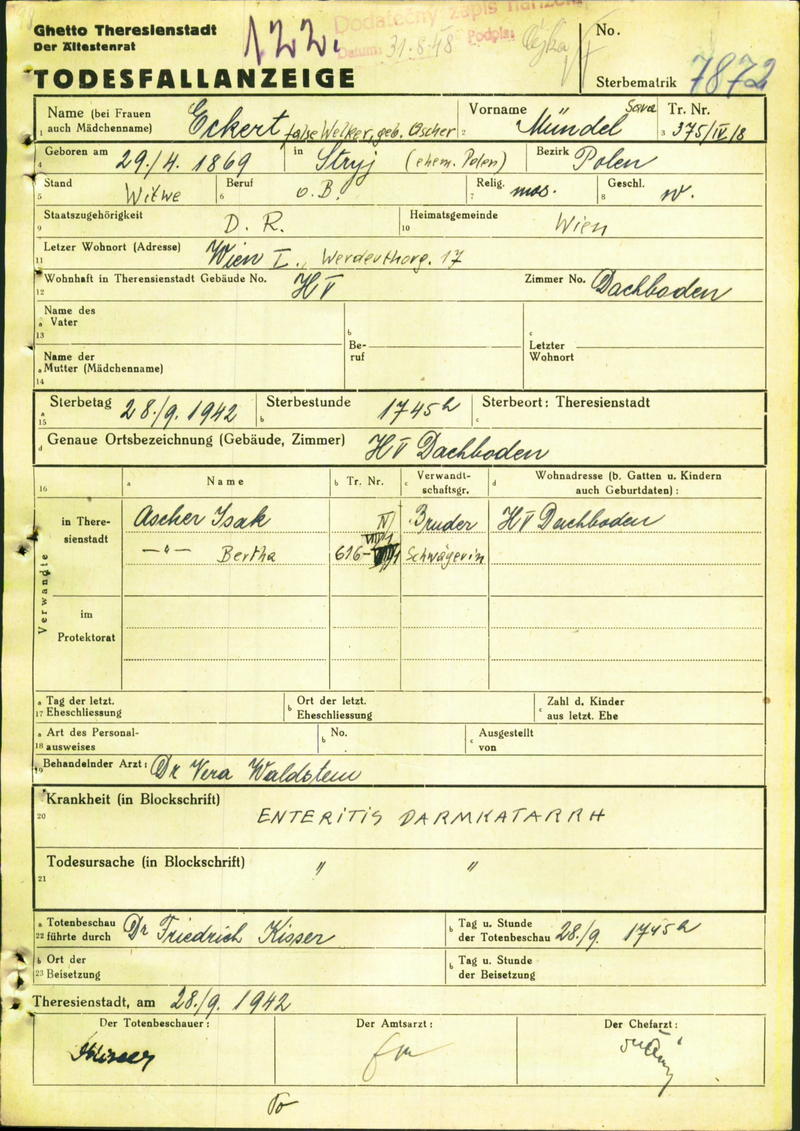 Ghetto Theresienstadt
Der Ältestenrat
122.
Dodatečný zápis nařízen
Datum: 31.8.48 Podpis:
No.
TODESFALLANZEIGE
Sterbematrik 7872
Name (bei Frauen auch Mädchenname) Eckert false Welker, geb. Ascher
Vorname Mündel Sara
Tr. Nr. 375/IV/8
1 2 3
Geboren am 29./4. 1869 in Stryj (ehem. Polen) Bezirk Polen
4
Stand Witwe Beruf o. B. Relig. mos. Geschl. w.
5 6 7 8
Staatszugehörigkeit D. R. Heimatsgemeinde Wien
9 10
Letzer Wohnort (Adresse) Wien I., Werderthorg. 17
11
Wohnhaft in Therensienstadt Gebäude No. H V Zimmer No. Dachboden
12
Name des Vater
a 13
Name der Mutter (Mädchenname)
a 14
b Beruf
c Letzter Wohnort
a 15 Sterbetag 28./9. 1942 b Sterbestunde 1745h c Sterbeort: Theresienstadt
d Genaue Ortsbezeichnung (Gebäude, Zimmer) H V Dachboden
16 a Name b Tr. Nr. c Verwandtschaftsgr. d Wohnadresse (b. Gatten u. Kindern auch Geburtdaten):
Verwandte
in Theresienstadt
Ascher Isak IV/ Bruder H V Dachboden
—"— Bertha 616- Schwägerin
im Protektorat
a 17 Tag der letzt. Eheschliessung b Ort der letzt. Eheschliessung c Zahl d. Kinder aus letzt. Ehe
a 18 Art des Personalausweises b No. c Ausgestellt von
19 Behandelnder Arzt: Dr Vera Waldstein
Krankheit (in Blockschrift) ENTERITIS DARMKATARRH
20
Todesursache (in Blockschrift) " "
21
a 22 Totenbeschau führte durch Dr Friedrich Kisser b Tag u. Stunde der Totenbeschau 28./9. 1745h
b 23 Ort der Beisetzung b Tag u. Stunde der Beisetzung
Theresienstadt, am 28./9. 1942
Der Totenbeschauer: Der Amtsarzt: Der Chefarzt:
Kisser